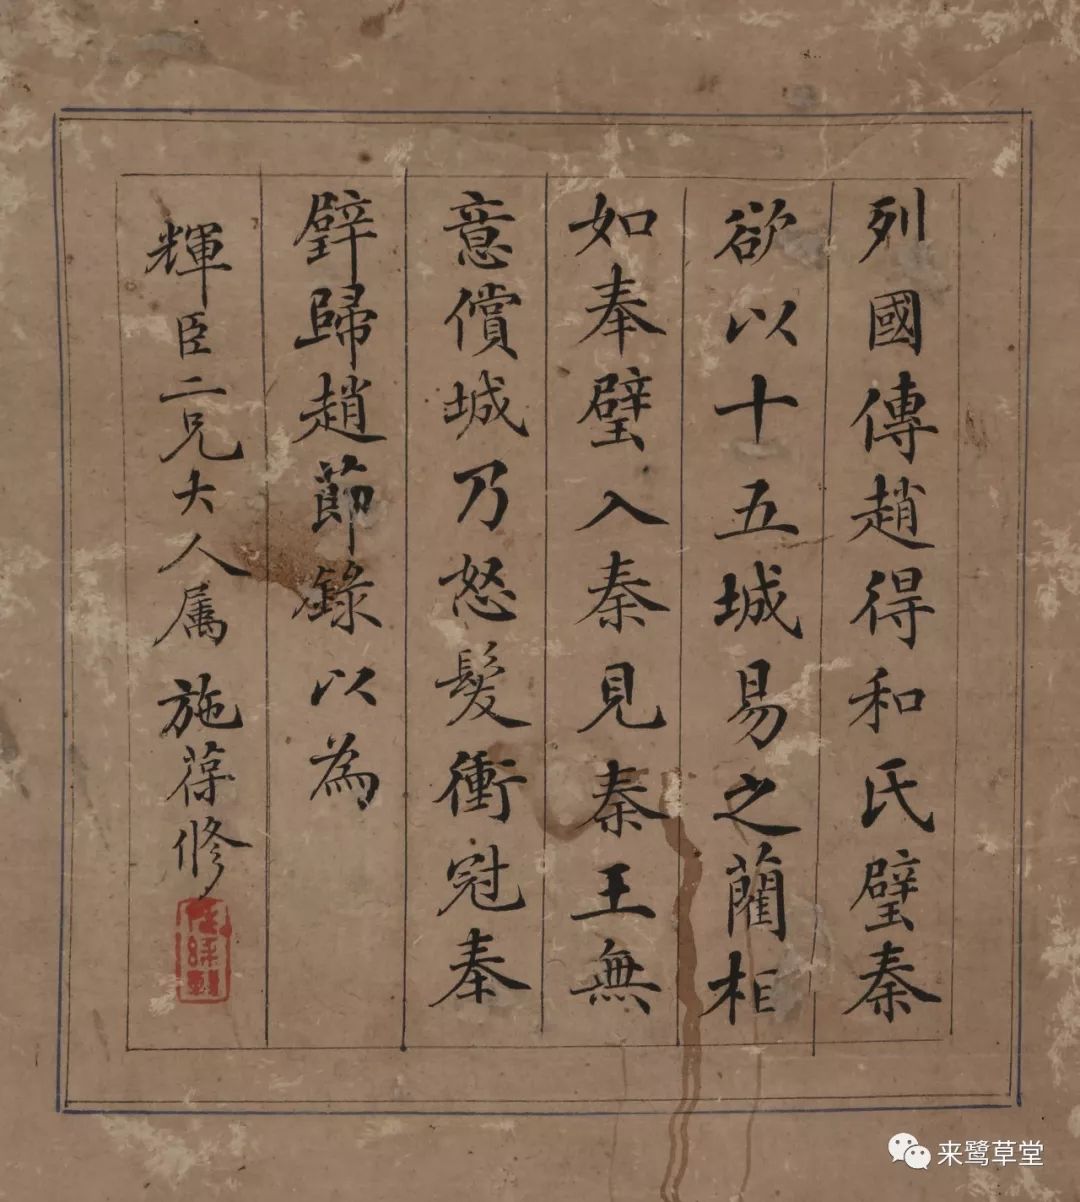 列國傳趙得和氏璧秦
欲以十五城易之藺相
如奉璧入秦見秦王無
意償城乃怒髮衝冠奉
璧歸趙節錄以為
輝臣二兄大人属 施葆修
来鹭草堂